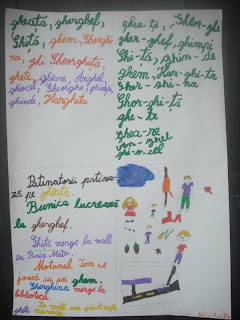 gheată, gherghef,
Ghiță, ghem, Gherghi-
na, ghi Gheorghiță,
ghete, gheare, Anghel,
ghiocel, Gheorghe, ghimpi,
ghinde, Harghita
ghea-tă, Gheor-ghe
gher-ghef, ghimpi
Ghi-tă, ghin-de
ghem, Har-ghi-ta
Gher-ghi-na
Gheor-ghi-ță
ghe-te
Ghea-re
An-ghel
ghi-o-cel
Patinatorii patinea-
ză pe gheată.
Bunica lucrează
la gherghef.
Ghiță merge la mall
în Baia Mare.
Motanul Tom se
joacă cu un ghem.
Gherghina merge la
bibliotecă.
La mall am găsit niște
ghete maronii.